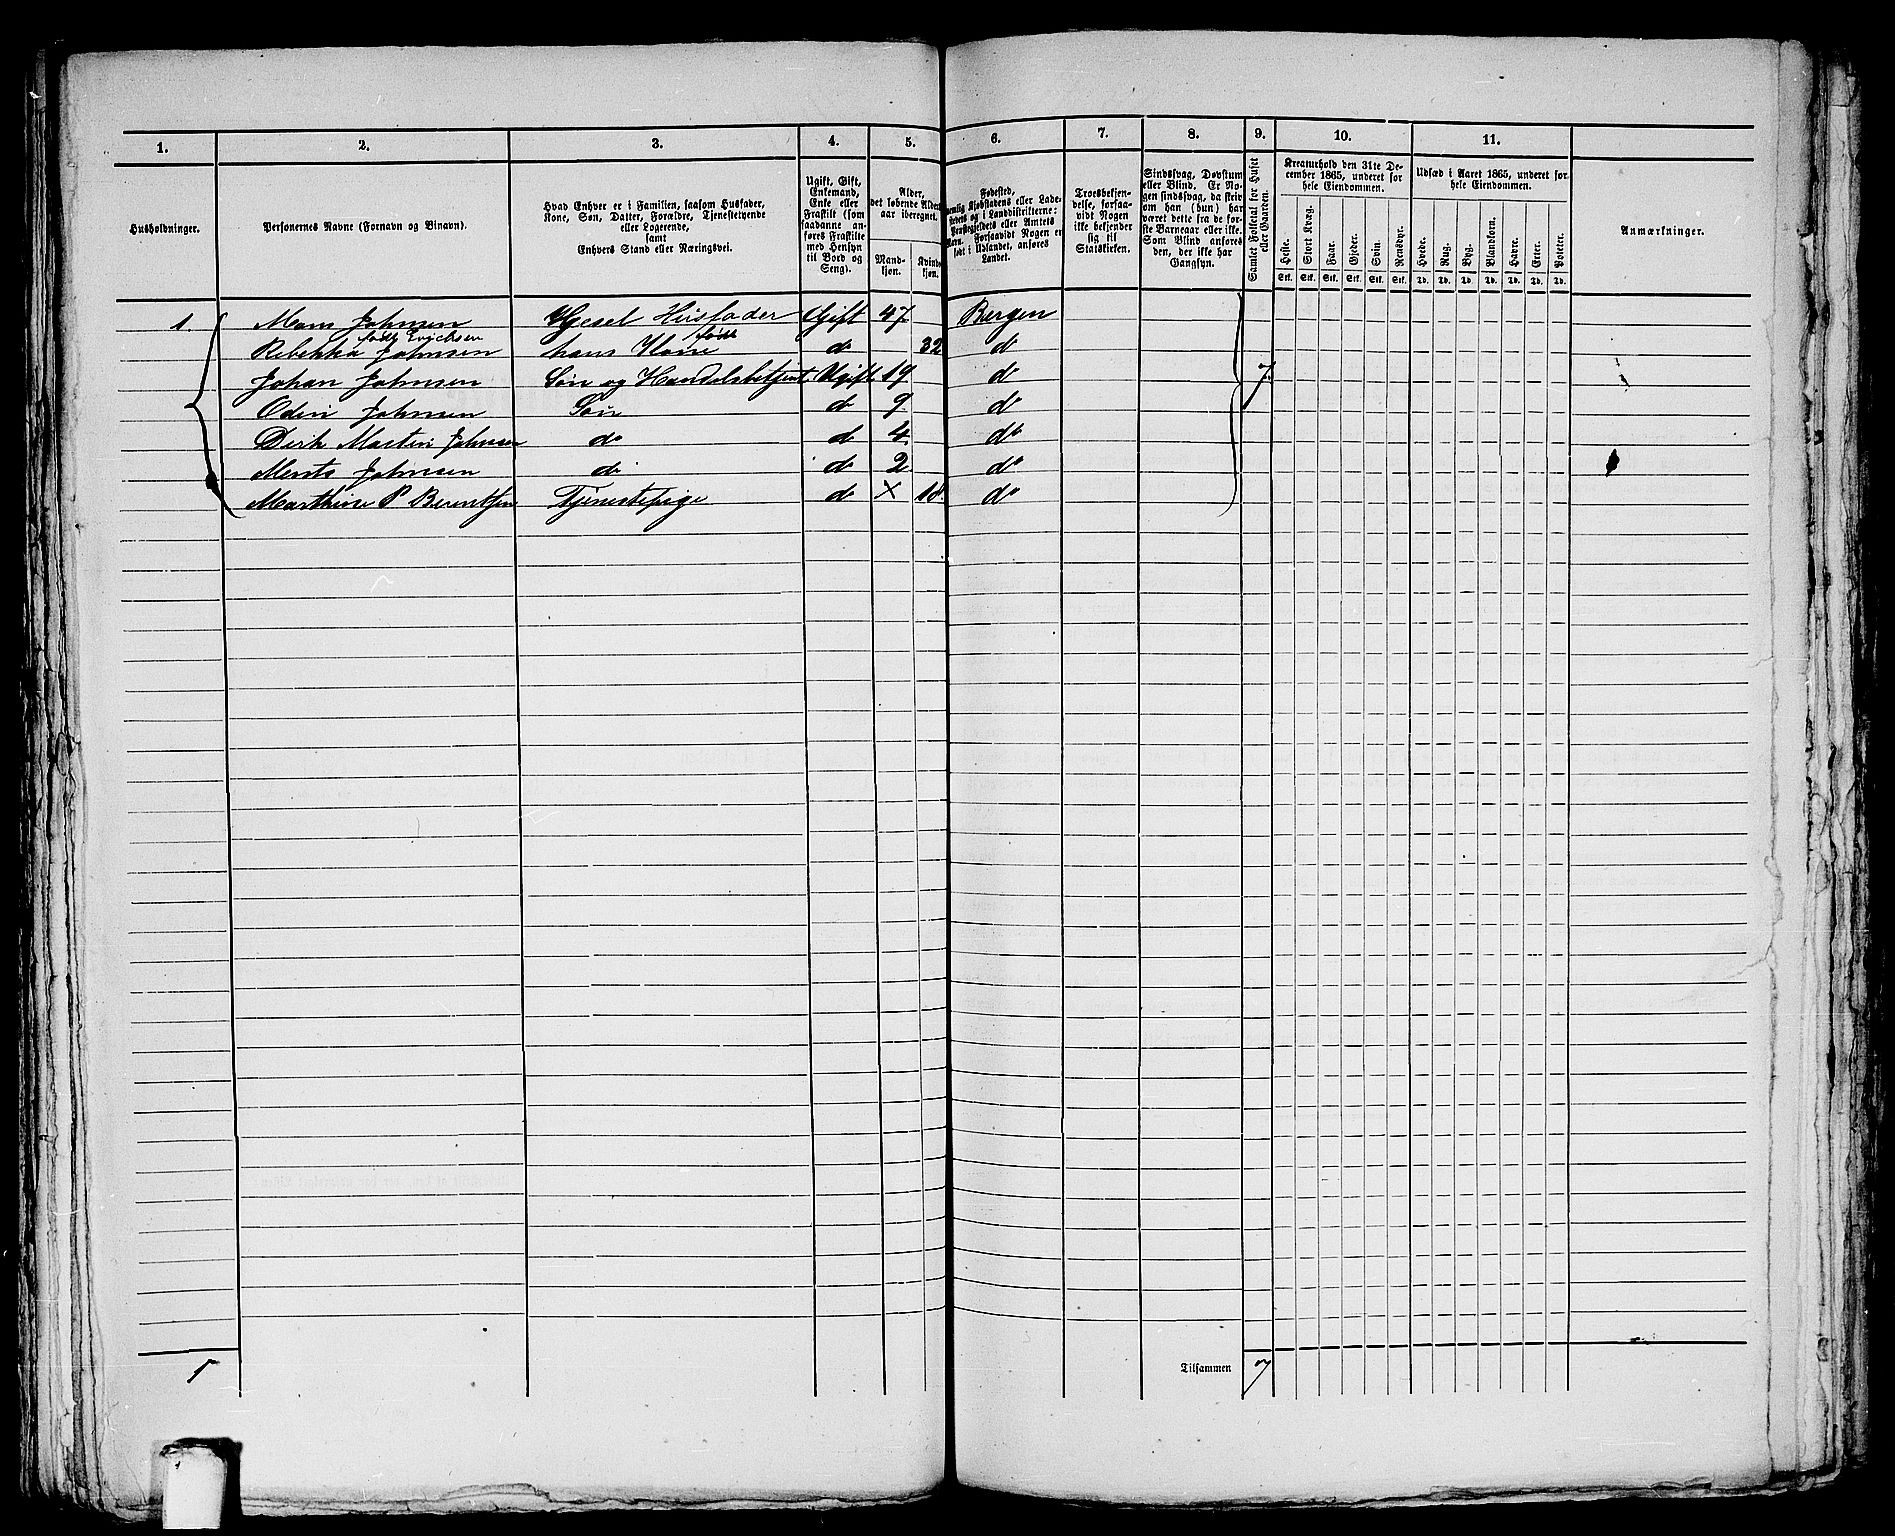 1. 2. 3. 4. 5. 6. 7. 8. 9. 10. 11.
Husholdninger.
Personernes Navne (Fornavn og Binavn).
Hvad Enhver er i Familien, saasom Husfader,
Kone, Søn, Datter, Forældre, Tjenestetyende
eller Logerende,
samt
Enhvers Stand eller Næringsvei.
Ugift, Gift,
Enkemand,
Enke eller
Fraskilt (som
saadanne an-
føres Fraskilte
med Hensyn
til Bord og
Seng).
Alder,
det løbende Alders-
aar iberegnet.
Mand-
kjøn.
Kvinde-
kjøn.
Fødested,
Kjøbstadens eller Lade-
stedets og i Landdistrikterne:
Præstegjeldets eller Amtets
Navn. Forsaavidt Nogen er
født i Udlandet, anføres
Landet.
Troesbekjen-
delse, forsaa-
vidt Nogen
ikke bekjender
sig til
Statskirken.
Sindssvag, Døvstum
eller Blind. Er No-
gen sindssvag, da skriv
om han (hun) har
været dette fra de før-
ste Barneaar eller ikke.
Som Blind anføres
den, der ikke har
Gangsyn.
Samlet Folketal for Huset
eller Gaarden.
Kreaturhold den 31te De-
cember 1865, underet for
hele Eiendommen.
Heste. Stort Kvæg. Faar. Gjeder. Svin. Rensdyr.
Stk. Stk. Stk. Stk. Stk. Stk.
Udsæd i Aaret 1865, underet for
hele Eiendommen.
Hvede. Rug. Byg. Blandkorn. Havre. Erter. Poteter.
Td. Td. Td. Td. Td. Td. Td.
Anmærkninger.
1 Mons Johnsen Gjesel Husfader Gift 47 Bergen
født Erichsen født
Rebekka Johnsen hans Kone do 32 do
Johan Johnsen Søn og Handelsbetjent Ugift 19 do 7
Odin Johnsen Søn do 9 do
Dirk Marten Johnsen do do 4 do
Ments Johnsen do do 2 do
Marthine P Berentsen Tjenestepige do X 18 do
1 Tilsammen 7